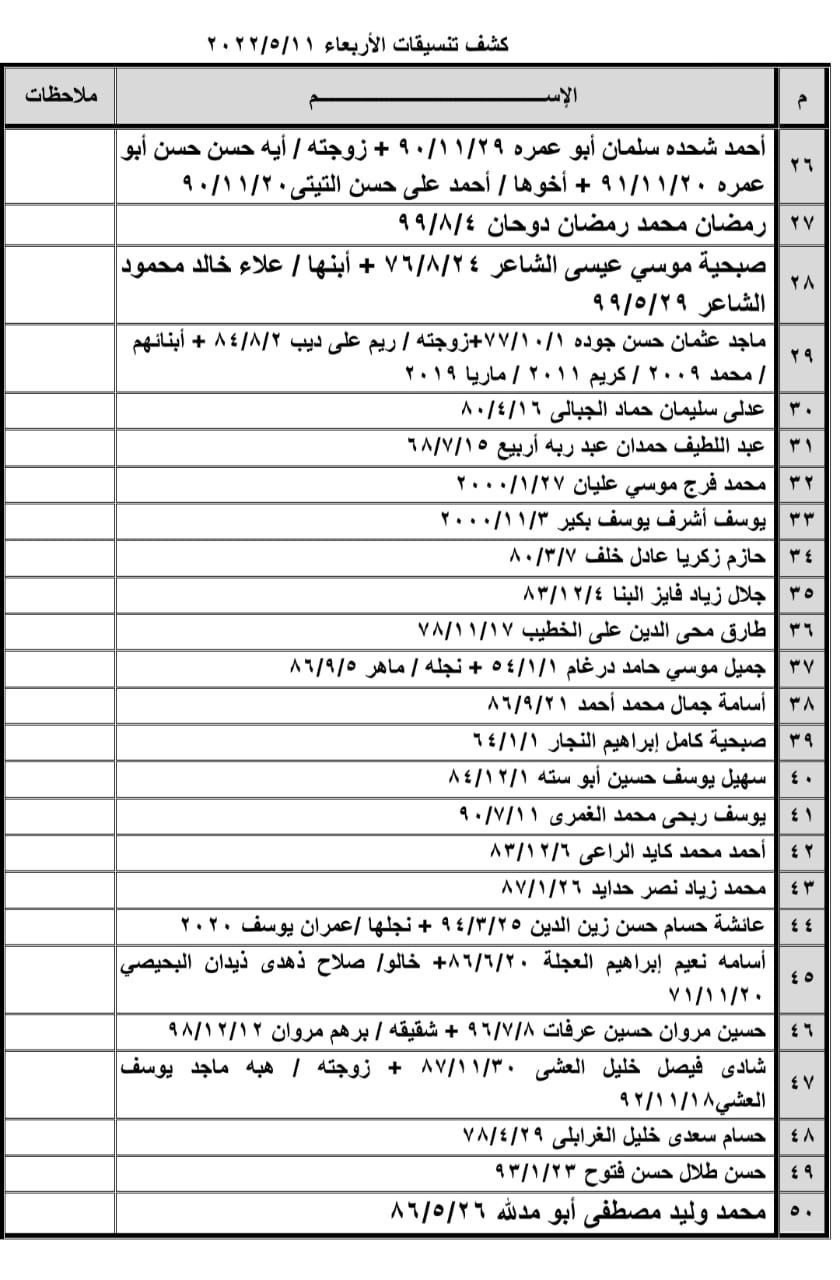 كشف تنسيقات الأربعاء ٢٠٢٢/٥/١١
م الإســـم ملاحظات
٢٦ أحمد شحده سلمان أبو عمره ٩٠/١١/٢٩ + زوجته / أيه حسن حسن أبو
عمره ٩١/١١/٢٠ + أخوها / أحمد على حسن التيتى٩٠/١١/٢٠
٢٧ رمضان محمد رمضان دوحان ٩٩/٨/٤
٢٨ صبحية موسي عيسى الشاعر ٧٦/٨/٢٤ + أبنها / علاء خالد محمود
الشاعر ٩٩/٥/٢٩
٢٩ ماجد عثمان حسن جوده ٧٧/١٠/١+زوجته / ريم على ديب ٨٤/٨/٢ + أبنائهم
/ محمد ٢٠٠٩ / كريم ٢٠١١ / ماريا ٢٠١٩
٣٠ عدلى سليمان حماد الجبالى ٨٠/٤/١٦
٣١ عبد اللطيف حمدان عبد ربه أربيع ٦٨/٧/١٥
٣٢ محمد فرج موسي عليان ٢٠٠٠/١/٢٧
٣٣ يوسف أشرف يوسف بكير ٢٠٠٠/١١/٣
٣٤ حازم زكريا عادل خلف ٨٠/٣/٧
٣٥ جلال زياد فايز البنا ٨٣/١٢/٤
٣٦ طارق محى الدين على الخطيب ٧٨/١١/١٧
٣٧ جميل موسي حامد درغام ٥٤/١/١ + نجله / ماهر ٨٦/٩/٥
٣٨ أسامة جمال محمد أحمد ٨٦/٩/٢١
٣٩ صبحية كامل إبراهيم النجار ٦٤/١/١
٤٠ سهيل يوسف حسين أبو سته ٨٤/١٢/١
٤١ يوسف ربحى محمد الغمرى ٩٠/٧/١١
٤٢ أحمد محمد كايد الراعى ٨٣/١٢/٦
٤٣ محمد زياد نصر حدايد ٨٧/١/٢٦
٤٤ عائشة حسام حسن زين الدين ٩٤/٣/٢٥ + نجلها /عمران يوسف ٢٠٢٠
٤٥ أسامه نعيم إبراهيم العجلة ٨٦/٦/٢٠+ خالو/ صلاح ذهدى ذيدان البحيصي
٧١/١١/٢٠
٤٦ حسين مروان حسين عرفات ٩٦/٧/٨ + شقيقه / برهم مروان ٩٨/١٢/١٢
٤٧ شادى فيصل خليل العشى ٨٧/١١/٣٠ + زوجته / هبه ماجد يوسف
العشي٩٢/١١/١٨
٤٨ حسام سعدى خليل الغرابلى ٧٨/٤/٢٩
٤٩ حسن طلال حسن فتوح ٩٣/١/٢٣
٥٠ محمد وليد مصطفى أبو مدلله ٨٦/٥/٢٦